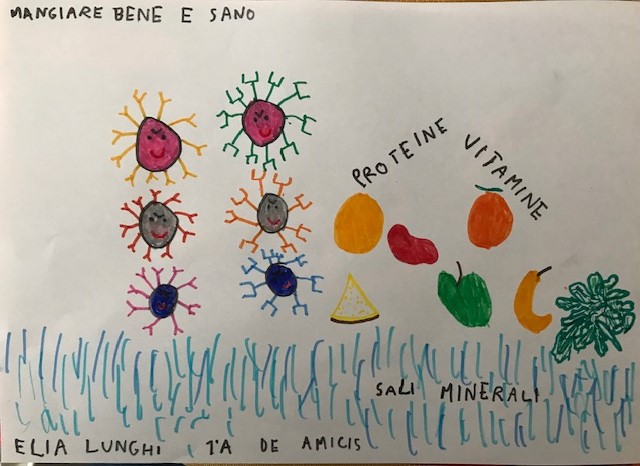 MANGIARE BENE E SANO
PROTEINE
VITAMINE
SALI MINERALI
ELIA LUNGHI 1°A DE AMICIS